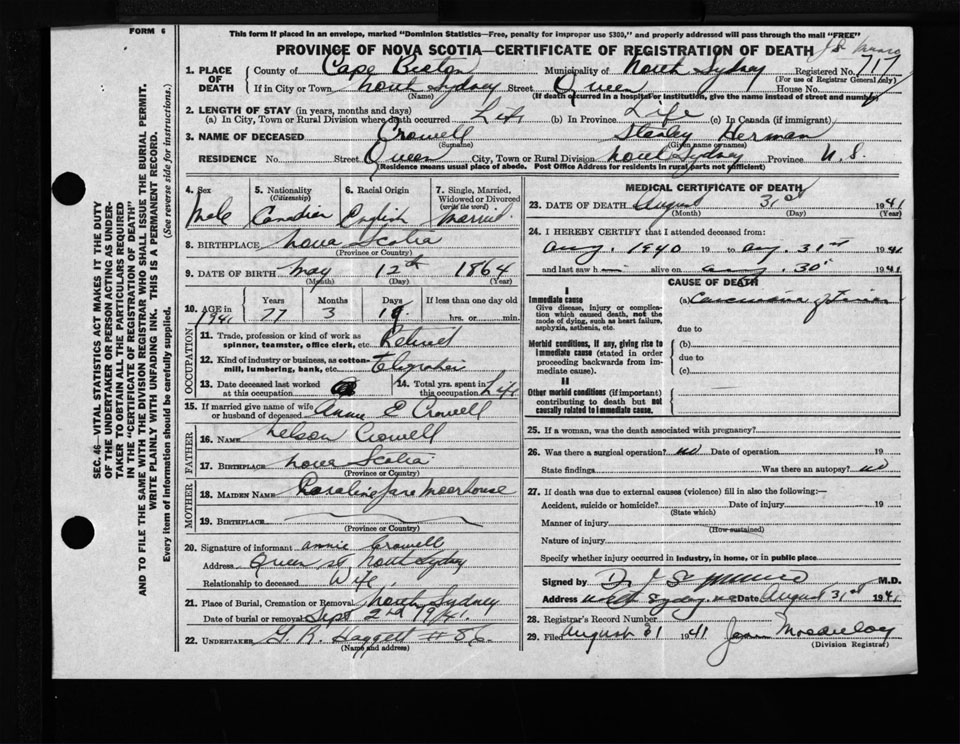 FORM 6
This form if placed in an envelope, marked "Dominion Statistics—Free, penalty for improper use $300," and properly addressed will pass through the mail "FREE"
PROVINCE OF NOVA SCOTIA—CERTIFICATE OF REGISTRATION OF DEATH
1. PLACE OF DEATH
County of Cape Breton Municipality of North Sydney Registered No. 717
(For use of Registrar General only)
If in City or Town North Sydney Street Queen House No.
(Name) (If death occurred in a hospital or institution, give the name instead of street and number)
2. LENGTH OF STAY (in years, months and days)
(a) In City, Town or Rural Division where death occurred Life (b) In Province Life (c) In Canada (if immigrant)
3. NAME OF DECEASED Crowell Stanley Herman
(Surname) (Given name or names)
RESIDENCE No. Street Queen City, Town or Rural Division North Sydney Province N.S.
(Residence means usual place of abode. Post Office Address for residents in rural parts not sufficient)
4. Sex Male
5. Nationality (Citizenship) Canadian
6. Racial Origin English
7. Single, Married, Widowed or Divorced (write the word) Married
8. BIRTHPLACE Nova Scotia
(Province or Country)
9. DATE OF BIRTH May 12th 1864
(Month) (Day) (Year)
10. AGE in 1941 Years 77 Months 3 Days 19 If less than one day old hrs. or min.
OCCUPATION
11. Trade, profession or kind of work as spinner, teamster, office clerk, etc. Retired
12. Kind of industry or business, as cotton-mill, lumbering, bank, etc.
13. Date deceased last worked at this occupation
14. Total yrs. spent in this occupation Life
15. If married give name of wife or husband of deceased Annie E Crowell
FATHER
16. NAME Nelson Crowell
17. BIRTHPLACE Nova Scotia
(Province or Country)
MOTHER
18. MAIDEN NAME Caroline Jane Moorhouse
19. BIRTHPLACE
(Province or Country)
20. Signature of informant Annie Crowell
Address Queen St North Sydney
Relationship to deceased Wife
21. Place of Burial, Cremation or Removal North Sydney
Date of burial or removal Sept 2nd 1941.
22. UNDERTAKER G. R. Haggett # 56
(Name and address)
MEDICAL CERTIFICATE OF DEATH
23. DATE OF DEATH August 31st 1941
(Month) (Day) (Year)
24. I HEREBY CERTIFY that I attended deceased from:
Aug. 1940 19 to Aug. 31st 1941
and last saw him alive on Aug. 30th 1941
CAUSE OF DEATH
I
Immediate cause
Give disease, injury or complication which caused death, not the mode of dying, such as heart failure, asphyxia, asthenia, etc.
(a) Carcinoma of
due to
Morbid conditions, if any, giving rise to immediate cause (stated in order proceeding backwards from immediate cause).
(b)
due to
(c)
II
Other morbid conditions (if important) contributing to death but not causally related to immediate cause.
25. If a woman, was the death associated with pregnancy?
26. Was there a surgical operation? No Date of operation 19
State findings Was there an autopsy? No
27. If death was due to external causes (violence) fill in also the following:—
Accident, suicide or homicide? Date of injury 19
(State which)
Manner of injury
(How sustained)
Nature of injury
Specify whether injury occurred in industry, in home, or in public place
Signed by Dr J S Munro M.D.
Address North Sydney N.S Date August 31st 1941
28. Registrar's Record Number
29. Filed August 31 1941
(Division Registrar)
SEC. 46—VITAL STATISTICS ACT MAKES IT THE DUTY
OF THE UNDERTAKER OR PERSON ACTING AS UNDER-
TAKER TO OBTAIN ALL THE PARTICULARS REQUIRED
IN THE "CERTIFICATE OF REGISTRATION OF DEATH"
AND TO FILE THE SAME WITH THE DIVISION REGISTRAR WHO SHALL ISSUE THE BURIAL PERMIT.
WRITE PLAINLY WITH UNFADING INK. THIS IS A PERMANENT RECORD.
Every item of information should be carefully supplied. (See reverse side for instructions.)